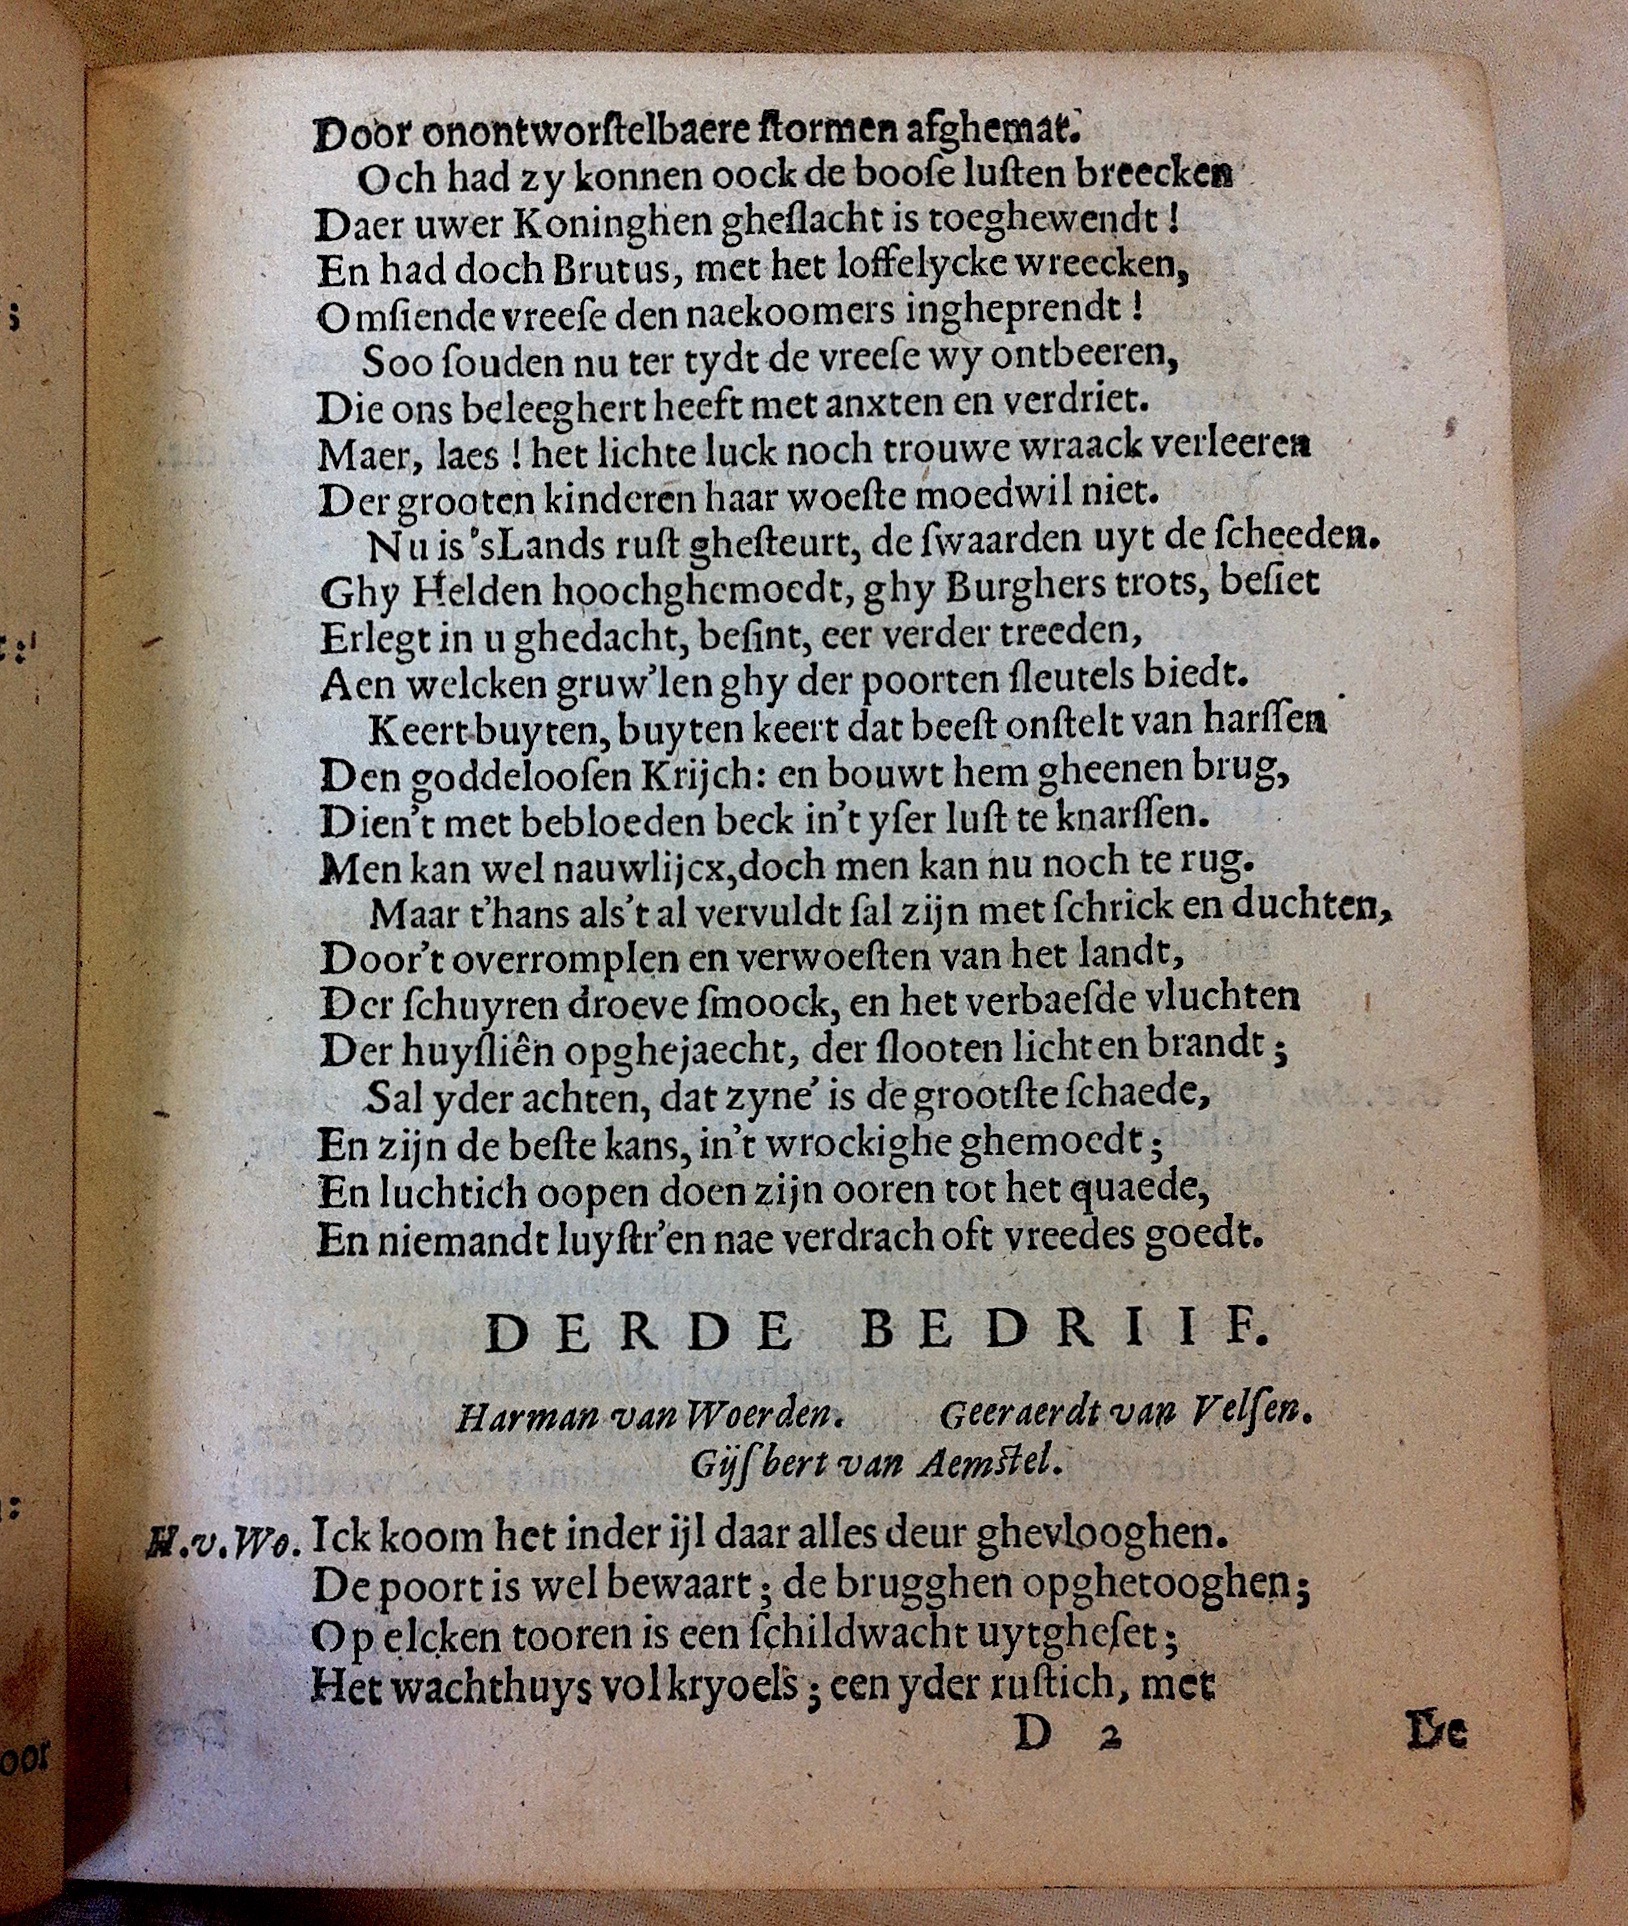 Door onontworſtelbaere ſtormen afghemat.
Och had zy konnen oock de booſe luſten breecken
Daer uwer Koninghen gheſlacht is toeghewendt !
En had doch Brutus, met het loffelycke wreecken,
Omſiende vreeſe den naekoomers ingheprendt !
Soo ſouden nu ter tydt de vreeſe wy ontbeeren,
Die ons beleeghert heeft met anxten en verdriet.
Maer, laes ! het lichte luck noch trouwe wraack verleeren
Der grooten kinderen haar woeſte moedwil niet.
Nu is 'sLands ruſt gheſteurt, de ſwaarden uyt de ſcheeden.
Ghy Helden hoochghemoedt, ghy Burghers trots, beſiet
Erlegt in u ghedacht, beſint, eer verder treeden,
Aen welcken gruw'len ghy der poorten ſleutels biedt.
Keert buyten, buyten keert dat beeſt onſtelt van harſſen
Den goddelooſen Krijch: en bouwt hem gheenen brug,
Dien't met bebloeden beck in't yſer luſt te knarſſen.
Men kan wel nauwlijcx, doch men kan nu noch te rug.
Maar t'hans als't al vervuldt ſal zijn met ſchrick en duchten,
Door't overromplen en verwoeſten van het landt,
Der ſchuyren droeve ſmoock, en het verbaeſde vluchten
Der huyſliên opghejaecht, der ſlooten licht en brandt ;
Sal yder achten, dat zyne' is de grootſte ſchaede,
En zijn de beſte kans, in't wrockighe ghemoedt ;
En luchtich oopen doen zijn ooren tot het quaede,
En niemandt luyſtr'en nae verdrach oft vreedes goedt.
DERDE BEDRIIF.
Harman van Woerden. Geeraerdt van Velſen.
Gijſbert van Aemſtel.
H.v.Wo. Ick koom het inder ijl daar alles deur ghevlooghen.
De poort is wel bewaart ; de brugghen opghetooghen ;
Op elcken tooren is een ſchildwacht uytgheſet ;
Het wachthuys vol kryoels ; een yder ruſtich, met
D 2 De
;
:
:
oor